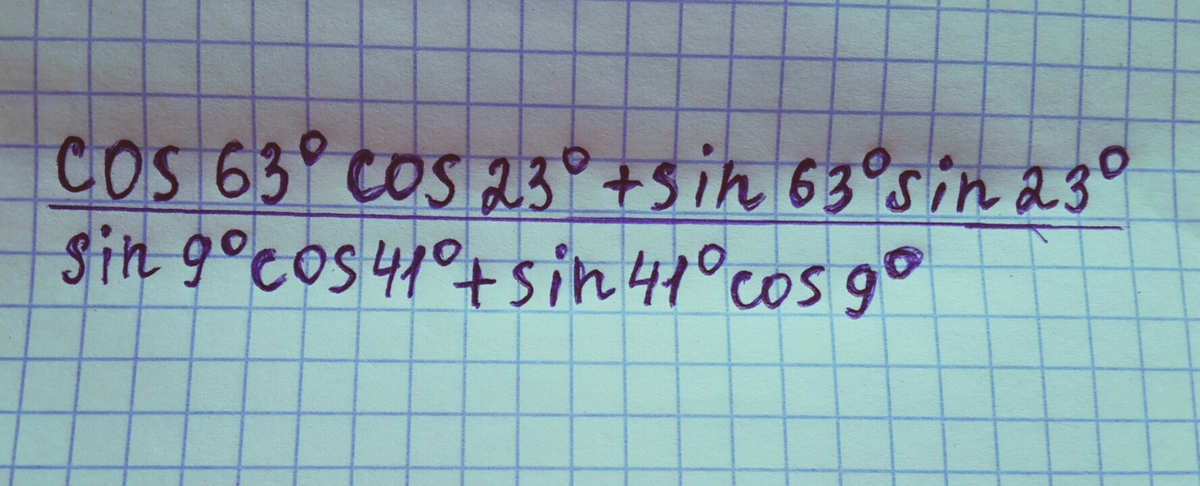 cos 63° cos 23° + sin 63° sin 23°
sin 9° cos 41° + sin 41° cos 9°